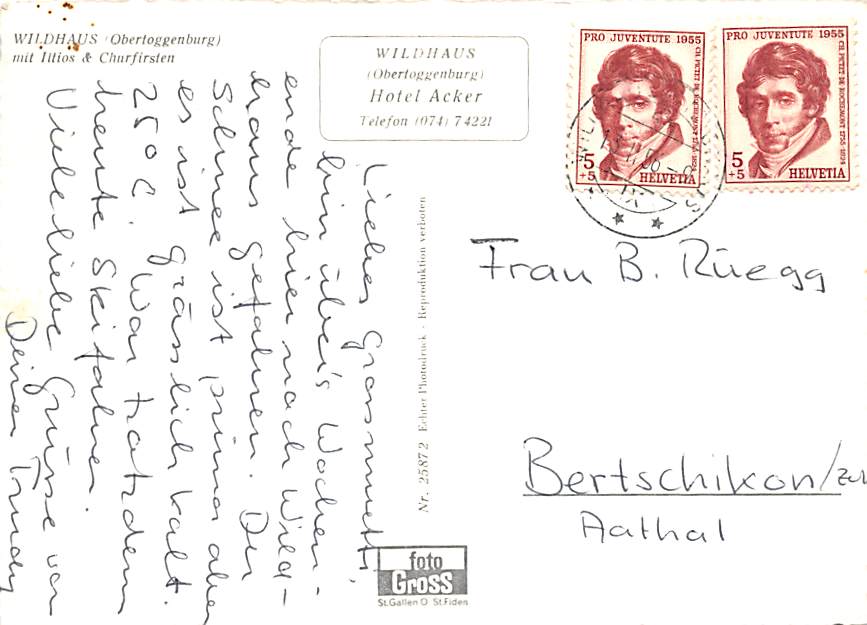 WILDHAUS (Obertoggenburg)
mit Iltios & Churfirsten
WILDHAUS
(Obertoggenburg)
Hotel Acker
Telefon (074) 7 42 21
PRO JUVENTUTE 1955
CH. PICTET DE ROCHEMONT 1755-1824
5
+5
HELVETIA
PRO JUVENTUTE 1955
CH. PICTET DE ROCHEMONT 1755-1824
5
+5
HELVETIA
Liebes Grossmuetti,
bin über's Wochen-
ende hier nach Wild-
haus gefahren. Der
Schnee ist prima aber
es ist grässlich kalt.
25° C. War trotzdem
heute Skifahren.
Viele liebe Grüsse von
Deiner Trudy
Nr. 25872 Echter Photodruck - Reproduktion verboten
foto
Gross
St.Gallen O St.Fiden
Frau B. Rüegg
Bertschikon/ZH
Aathal